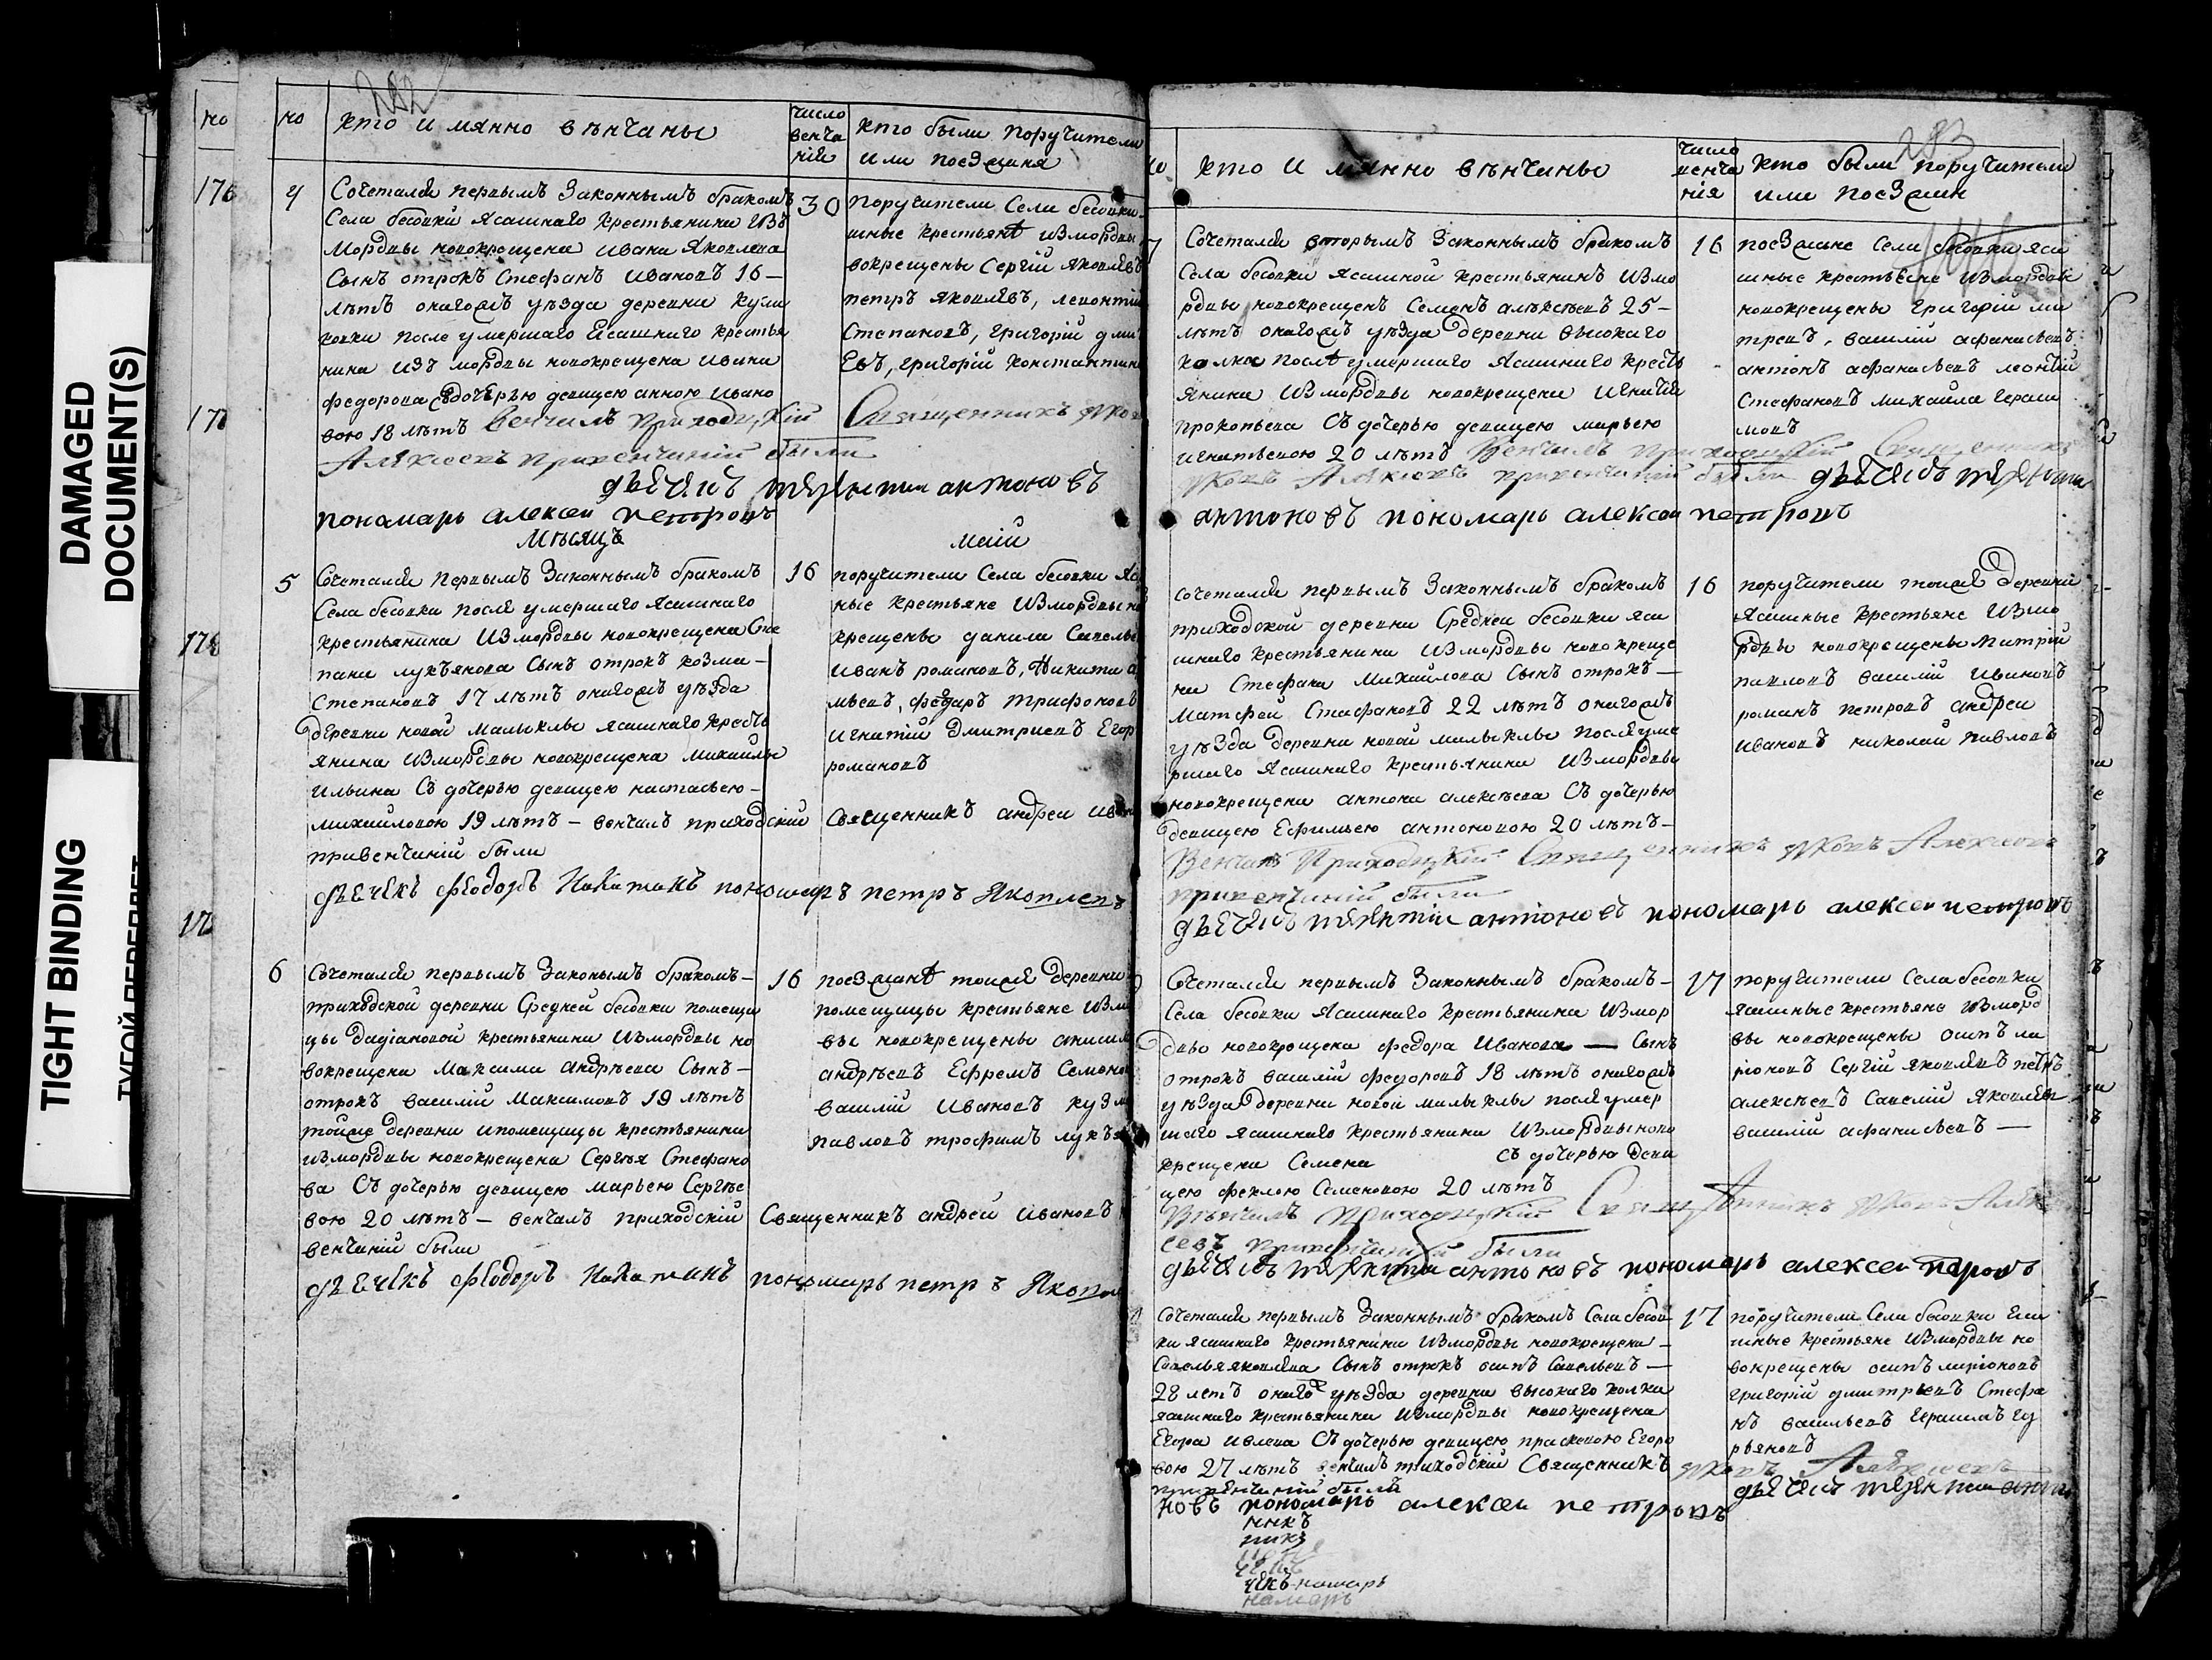 DAMAGED
DOCUMENT(S)
TIGHT BINDING
ТУГОЙ ПЕРЕПЛЕТ
282
но
кто имянно вѣнчаны
число
венча
нія
кто были поручители
или поезжаня
176
177
178
4
Сочетался первымъ Законнымъ бракомъ
Села бесовки Ясашнаго крестьянина изъ
Мордвы новокрещена ивана Яковлева
Сынъ отрокъ Стефанъ ивановъ 16 –
лѣтъ онагожъ уѣзда деревни кули
ковки после умершаго Ясашнаго крестья
нина изъ мордвы новокрещена ивана
федорова Здочерью девицею анною ивано
вою 18 лѣтъ венчалъ приходцкій
30
поручители Села бесовки
шные крестьянѣ измордвы
вокрещены Сергій яковлевъ
петръ яковлевъ, леонтій
Степановъ, григорій дми
евъ, григорій константин
Священникъ яков
Алексеевъ привенчаніи были
дьячекъ терентии антоновъ
пономарь алексеи петровъ
Мѣсяцъ маіи
5
Сочетался первымъ Законнымъ бракомъ
Села бесовки после умершаго Ясашнаго
крестьянина измордвы новокрещена Сте
пана лукьянова Сынъ отрокъ козма –
Степановъ 17 лѣтъ онагожъ уѣзда
деревни новой малыклы ясашнаго кресть
янина измордвы новокрещена михаилы
ильина Съ дочерью девицею настасьею –
михаиловою 19 лѣтъ – венчалъ приходскій
привенчаніи были
16
поручители Села бесовки Яса
ные крестьяне измордвы но
крещены данила Савелье
иванъ романовъ, Никита
мьевъ, федаръ трифоновъ
игнатій Дмитриевъ Егор
романовъ
Священникъ андреи ива
дьечекъ Ѳеодоръ пономарь петръ Яковлевъ
6
Сочетался первымъ Законымъ бракомъ –
приходской деревни Средней бесовки помещи
цы дадіановой крестьянина измордвы но
вокрещена Максима андрѣева Сынъ –
отрокъ василій Максимовъ 19 лѣтъ
тойже деревни ипомещицы крестьянина
измордвы новокрещена Сергѣя Стефано
ва Съ дочерью девицею марьею Сергѣе
вою 20 лѣтъ – венчалъ приходскій
венчаніи были
16
поезжанѣ тоижъ деревни
помещицы крестьяне изм
вы новокрещены анисим
андрѣевъ Ефремъ Семено
василій ивановъ кузм
павловъ трофимъ лукья
Священникъ андреи ивановъ
дьечекъ Ѳеодоръ пономарь петръ Яковл
283
кто имянно вѣнчаны
число
венча
нія
кто были поручители
или поезжан
7
Сочетался вторымъ Законнымъ бракомъ
Села бесовки Ясашной крестьянинъ измо
рдвы новокрещенъ Семенъ алексѣевъ 25 –
лѣтъ онагожъ уѣзда деревни высокаго
колка послѣ умершаго Ясашнаго кресть
янина измордвы новокрещена игнатія
прокопьева Съ дочерью девицею марьею
игнатьевою 20 лѣтъ венчалъ приходцкій Священникъ
яковъ Алексеевъ привенчаніи были дьячекъ терентии
антоновъ пономарь алексеи петровъ
16
поезжане Села бесовки яса
шные крестьяне измордвы
новокрещены григорій ми
тревъ, василій афанасьевъ
антонъ афанасьевъ леонтій
Стефановъ михаила гераси
мовъ
сочетался первымъ Законнымъ бракомъ
приходской деревни Средней бесовки яса
шнаго крестьянина измордвы новокреще
на Стефана Михаилова Сынъ отрокъ –
Матфей Стефановъ 22 лѣтъ онагожъ
уѣзда деревни новой малыклы послеуме
ршаго Ясашнаго крестьянина измордвы
новокрещена антона алексѣева Съ дочерью
девицею Ефимьею антоновою 20 лѣтъ –
Венчалъ Приходцкій Священникъ яковъ Алексеевъ
привенчаніи были
дьячекъ терентіи антоновъ пономарь алексеи петровъ
16
поручители тоижъ деревни
Ясашные крестьяне измо
рдвы новокрещены митрій
павловъ василій ивановъ
романъ петровъ андреи
ивановъ николай павловъ
Сочетался первымъ Законнымъ бракомъ –
Села бесовки Ясашнаго крестьянина измор
двы новокрещена федора иванова — Сынъ
отрокъ василій федоровъ 18 лѣтъ онагожъ
уѣзда деревни новой малыклы после умер
шаго ясашнаго крестьянина измордвы ново
крещена Семена съ дочерью деви
цею феклою Семеновою 20 лѣтъ
Венчалъ приходцкій Священникъ яковъ Алек
сеевъ привенчаніи были
дьячекъ терентии антоновъ пономарь алексеи петровъ
17
поручители Села бесовки
ясашные крестьяне изморд
вы новокрещены осипъ ла
ріоновъ Сергій яковлевъ петръ
алексѣевъ Савелій Яковлевъ
василій афанасьевъ —
Сочетался первымъ Законнымъ бракомъ Села бесов
ки ясашнаго крестьянина измордвы новокрещена –
Савелья яковлева Сынъ отрокъ осипъ Савельевъ —
28 летъ онагожъ уѣзда деревни высокаго колка
ясашнаго крестьянина измордвы новокрещена
Егора ивлева Съ дочерью девицею прасковою Егоро
вою 27 лѣтъ венчалъ приходскій Священникъ яковъ Алексеевъ
привенчаніи были дьячекъ терентии анто
новъ пономарь алексеи петровъ
17
поручители Села бесовки яса
шные крестьяне измордвы но
вокрещены осипъ ларіоновъ
григорій дмитрьевъ Стефа
нъ васильевъ герасимъ гу
рьяновъ